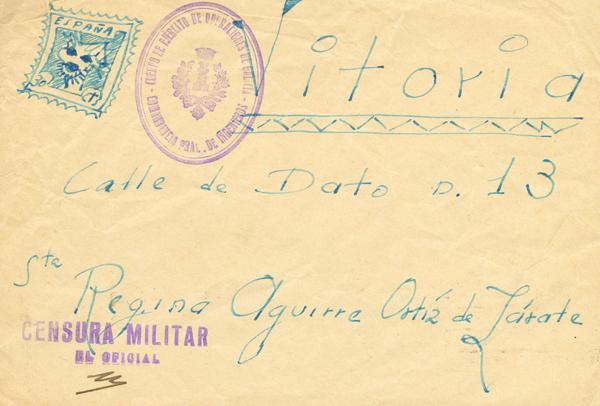 ESPAÑA
30 CTS
CUERPO DE EJÉRCITO DE OPERACIONES DE GALICIA
COMANDANCIA PRAL. DE INGENIEROS
Vitoria
Calle de Dato n. 13
Sta
Regina Aguirre Ortíz de Zárate
CENSURA MILITAR
EL OFICIAL